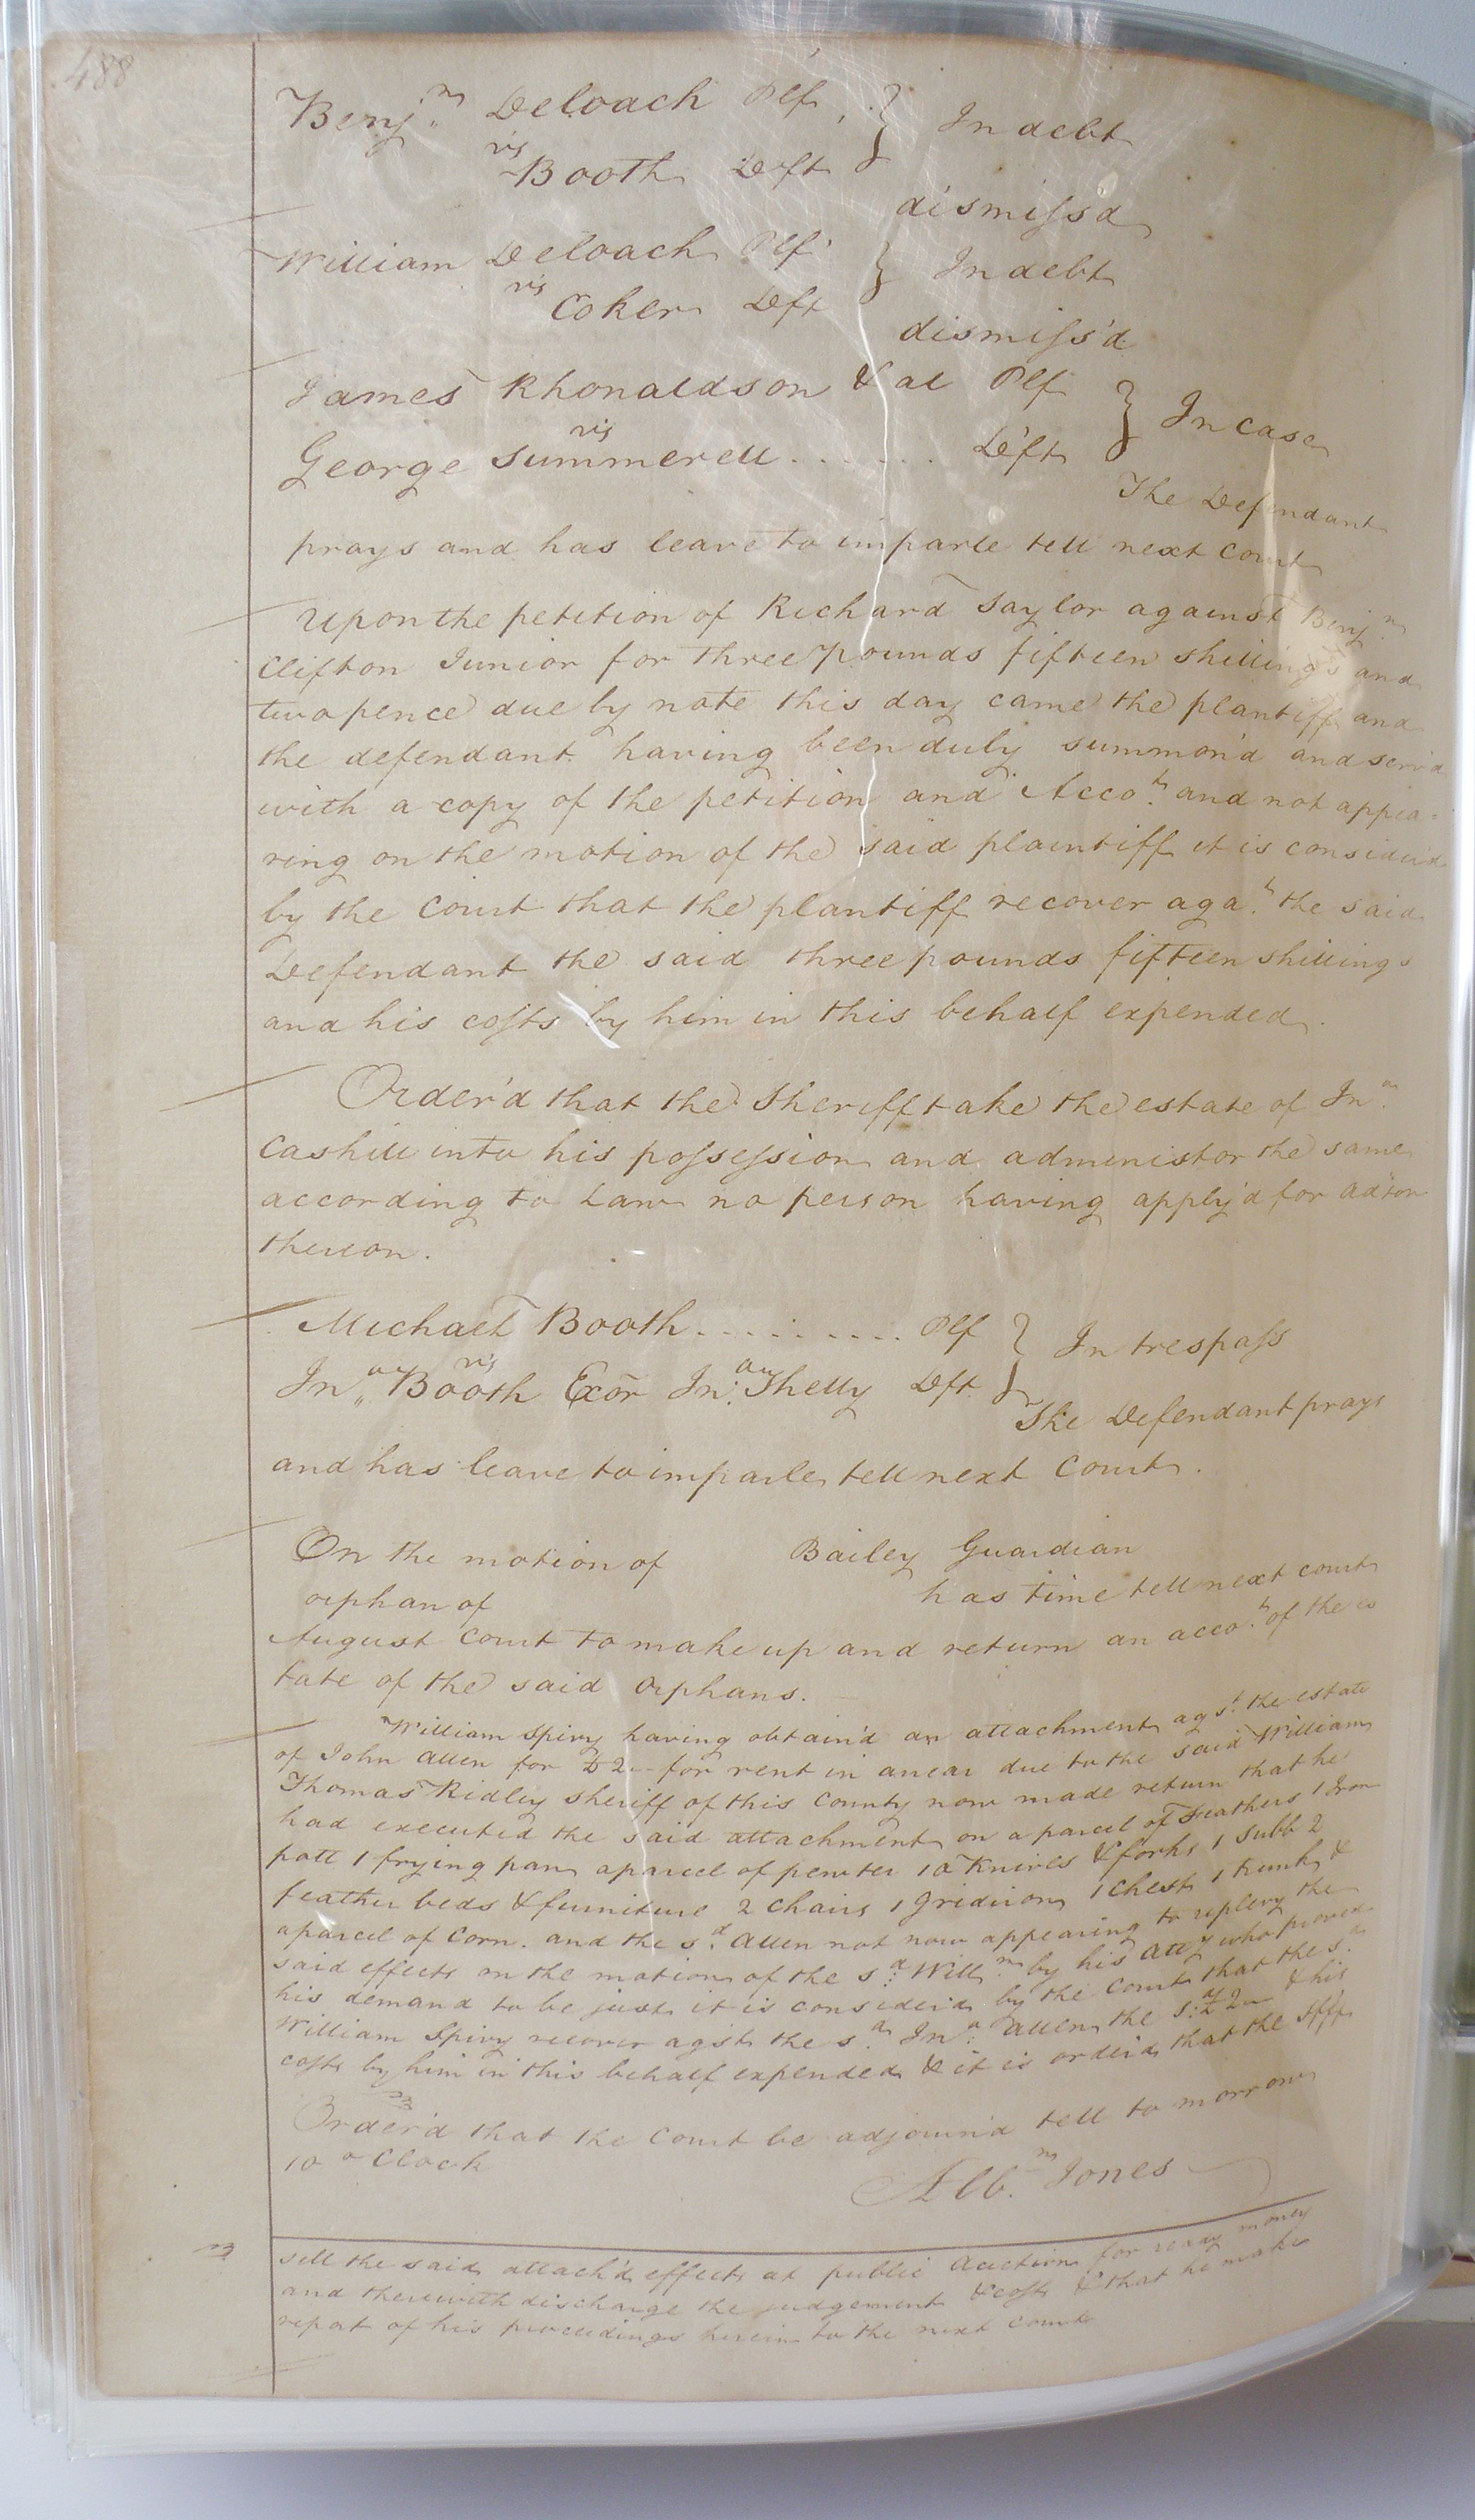 488
Benj.m Deloach Plf } In debt
vs
Booth Deft
dismiss'd
William Deloach Plf } In debt
vs
Coker Deft
dismiss'd
James Rhonaldson & al Plf } In case
vs
George Summerell ....... Deft
The Defendant
prays and has leave to imparle tell next Court
Upon the petition of Richard Taylor against Benj.m
Clifton Junior for three pounds fifteen shillings and
two pence due by note this day came the plantiff and
the defendant having been duly summon'd and serv'd
with a copy of the petition and Acco.t and not appea=
ring on the motion of the said plaintiff it is consider'd
by the Court that the plantiff recover aga.t the said
Defendant the said three pounds fifteen shillings
and his costs by him in this behalf expended.
Order'd that the Sheriff take the estate of Jn.o
Cashill into his possession and administor the same
according to Law no person having apply'd for ad'ion
thereon.
Michael Booth .......... Plf } In trespass
vs
Jn.o Booth Exor Jn.o Shelly Dft
The Defendant prays
and has leave to imparle tell next Court.
On the motion of Bailey Guardian
orphan of has time tell next court
August Court to make up and return an acco.t of the es
tate of the said orphans.
William Spivy having obtain'd an attachment ags.t the estate
of John Allen for £2.. for rent in arear due to the said William
Thomas Ridley Sheriff of this County now made return that he
had executed the said attachment on a parcel of Feathers 1 Iron
pott 1 frying pan a parcel of pewter 10 Knives & forks 1 Tubb 2
feather beds & furniture 2 Chairs 1 Gridiron 1 Chest 1 trunk &
a parcel of Corn. and the s.d Allen not now appearing to replevy the
said effects on the motion of the s.d Will.m by his Atty who proved
his demand to be just it is consider'd by the Court that the s.d
William Spivy recover agst the s.d Jn.o Allen the s.d £2.. & his
costs by him in this behalf expended & it is order'd that the Sfff
Order'd that the Court be adjourn'd tell to morrow
10 o Clock
Alb.m Jones
sell the said attach'd effects at public Auction for ready money
and therewith discharge the judgement & costs & that he make
repot of his proceedings herein to the next Court